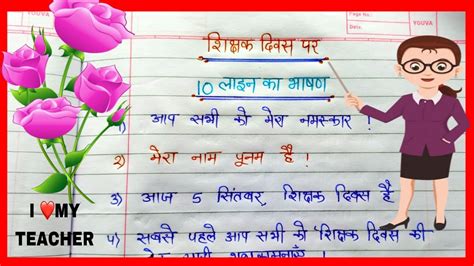 YOUVA
YOUVA
शिक्षक दिवस पर
10 लाइन का भाषण
1) आप सभी को मेरा नमस्कार !
2) मेरा नाम पूनम है !
3) आज 5 सितंबर, शिक्षक दिवस है
4) सबसे पहले आप सभी को 'शिक्षक दिवस की
I ❤️MY
TEACHER